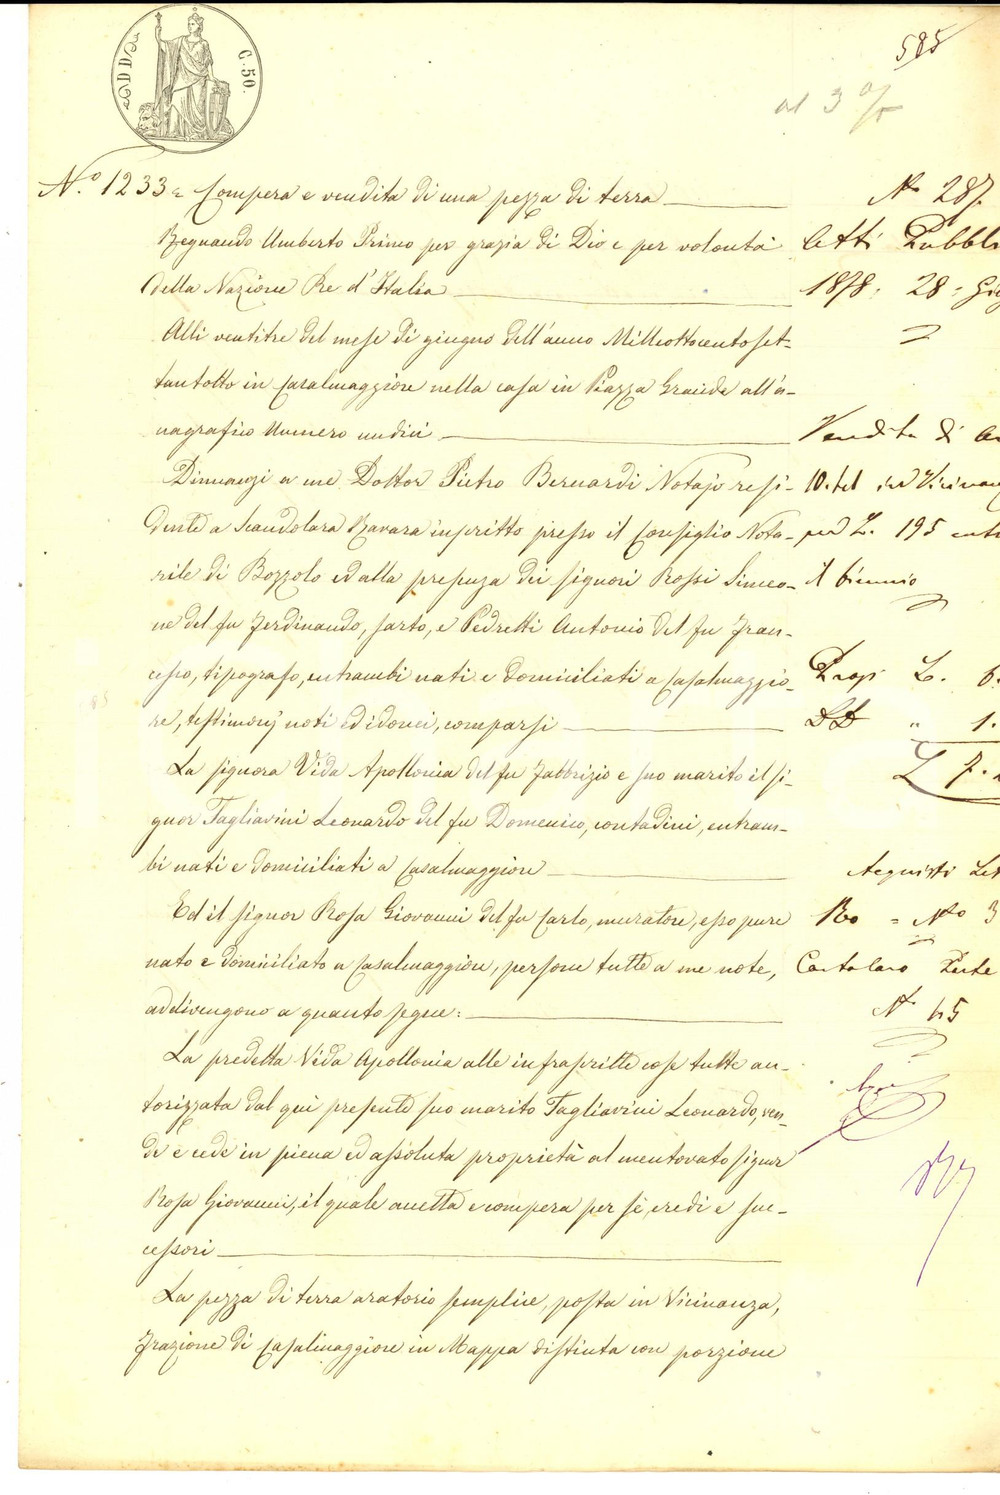 585
C. 50.
al 3 %
N.º 1233 = Compera e vendita di una pezza di terra
Regnando Umberto Primo per grazia di Dio e per volontà
della Nazione Re d'Italia
Alli ventitre del mese di giugno dell'anno Milleottocentoset-
tantotto in Casalmaggiore nella casa in Piazza Grande all'a-
nagrafico Numero undici
Dinnanzi a me Dottor Pietro Bernardi Notajo resi-
dente a Scandolara Ravara inscritto presso il Consiglio Nota-
rile di Bozzolo ed alla presenza dei signori Rossi Simeo-
ne del fu Ferdinando, sarto, e Pedretti Antonio del fu Fran-
cesco, tipografo, entrambi nati e domiciliati a Casalmaggio-
re, testimonj noti ed idonei, comparsi
La signora Vida Apollonia del fu Fabbrizio e suo marito il si-
gnor Tagliavini Leonardo del fu Domenico, contadini, entram-
bi nati e domiciliati a Casalmaggiore
Ed il signor Rosa Giovanni del fu Carlo, muratore, esso pure
nato e domiciliato a Casalmaggiore, persone tutte a me note,
addivengono a quanto segue:
La predetta Vida Apollonia alle infrascritte cose tutte au-
torizzata dal qui presente suo marito Tagliavini Leonardo, ven-
de e cede in piena ed assoluta proprietà al mentovato signor
Rosa Giovanni, il quale accetta e compera per sè, eredi e suc-
cessori
La pezza di terra aratorio semplice, posta in Vicinanza,
Frazione di Casalmaggiore in Mappa distinta con porzione
N. 287.
Atti Pubbl
1878. 28. Giu
Vendita di
in Vicinan
per L. 195 entr
il biennio
Prop L. 6.
DD " 1.
L 7.
Acquisti
Ro = No 3
Catalano Parte
N. 65